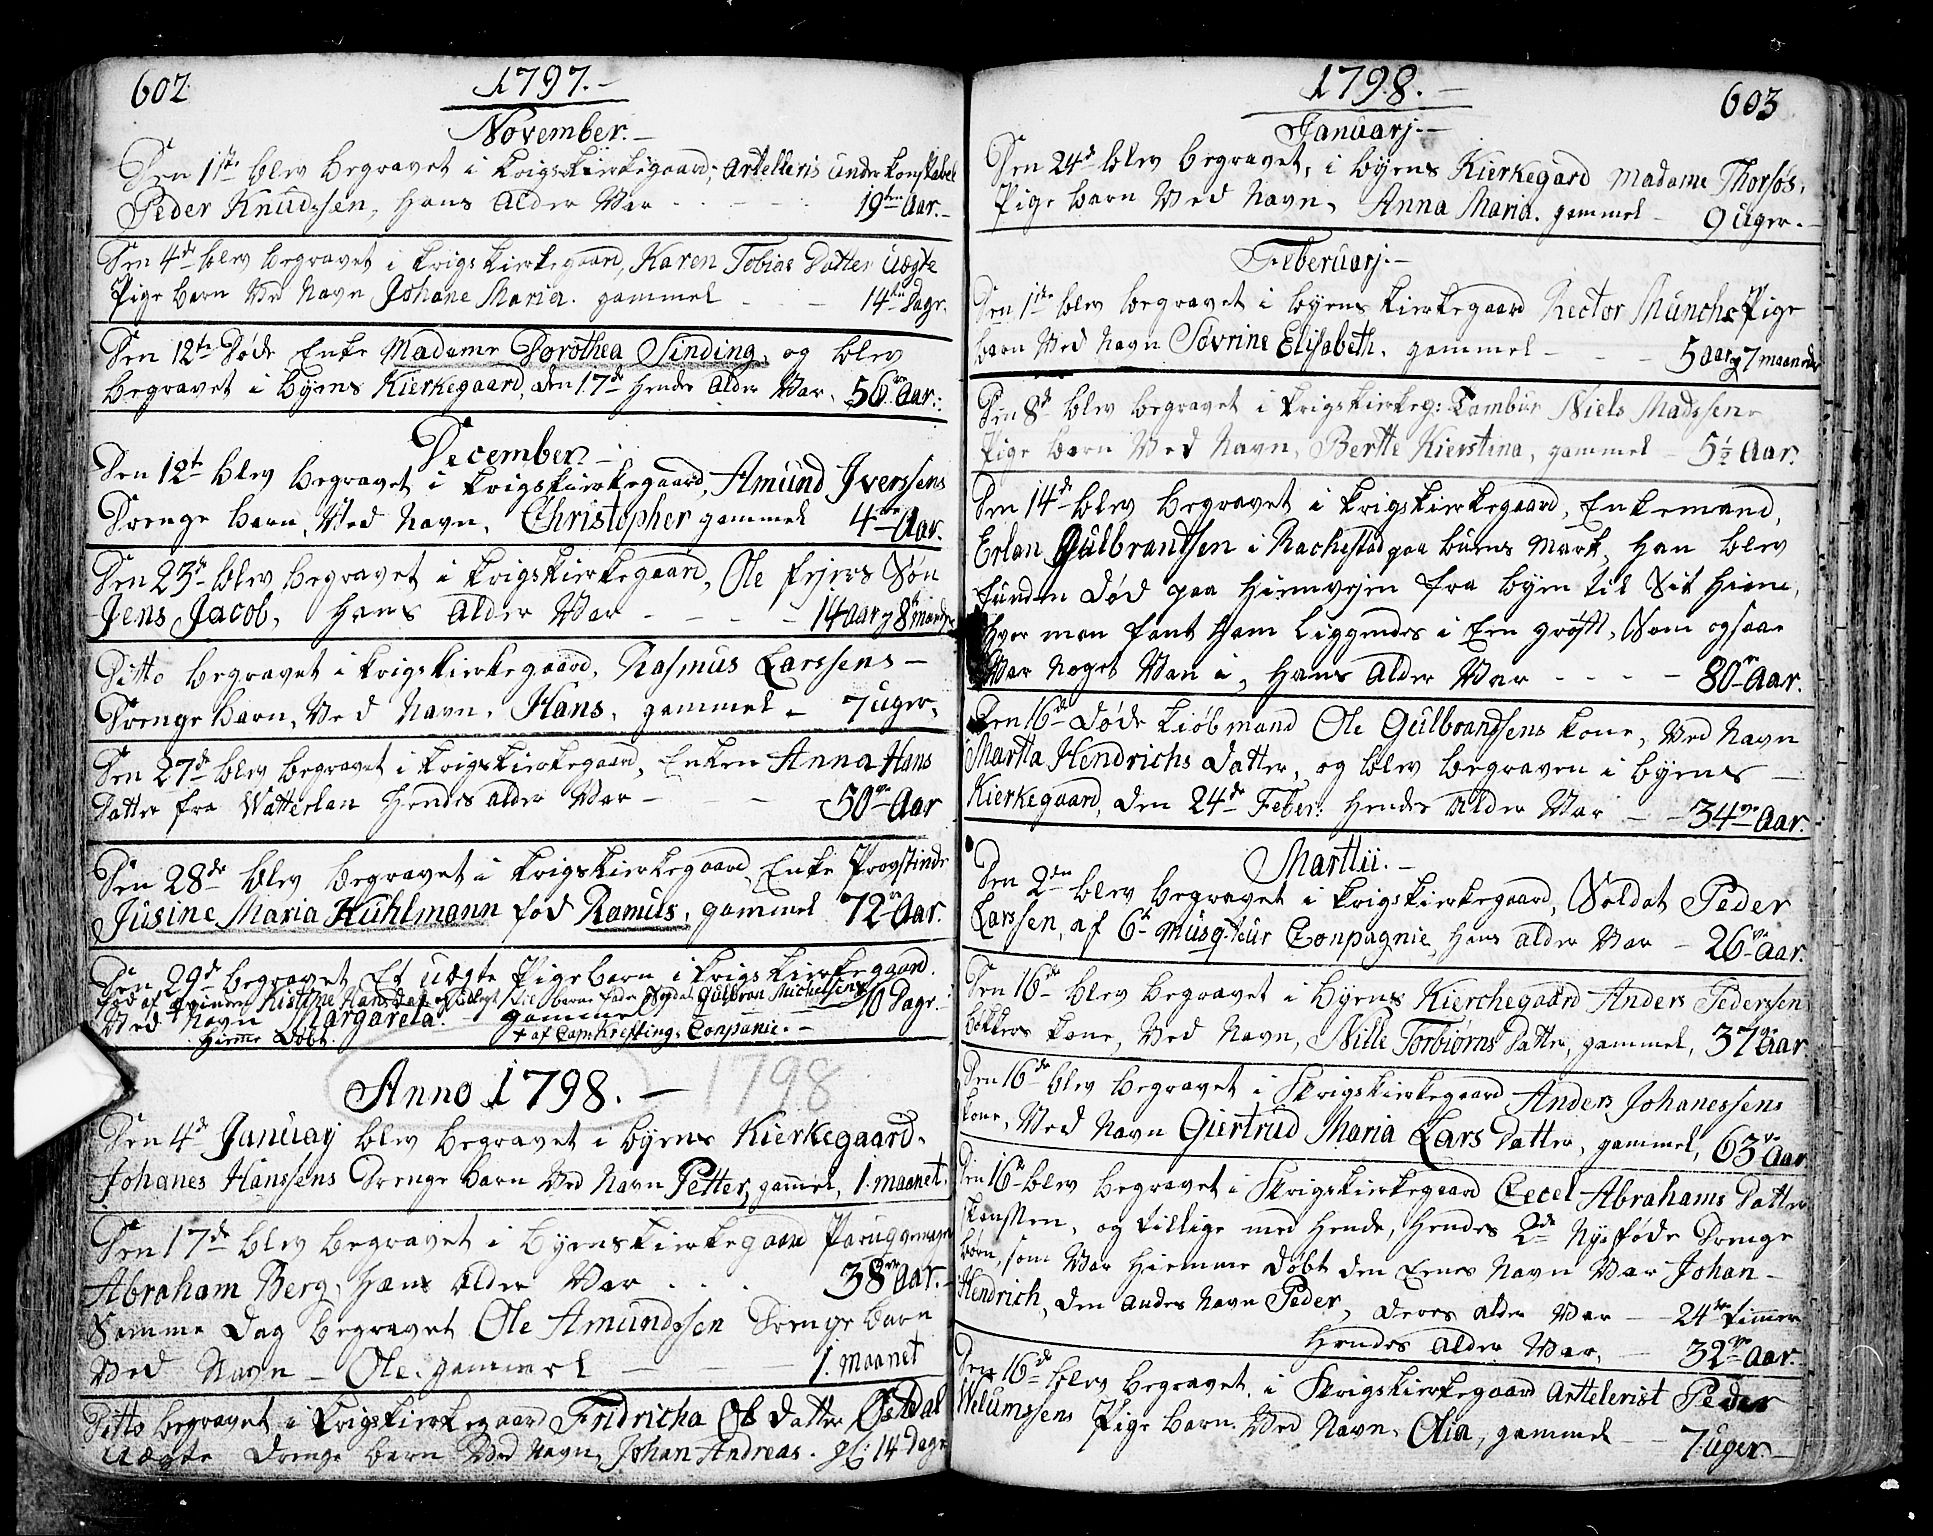 602.
1797.
November.
Den 1ste blev begravet i krigskirkegaard, Artelleris underkonstabel
Peder Knudssen, hans Alder Var 19ten Aar.
Den 4de blev begravet i krigskirkegaard, Karen Tobias Datter Uægte
Pige barn Ved Navn Johane Maria. gammel 14ten Dagr.
Den 12te Døde Enke Madame Dorothea Sinding, og blev
begravet i byens Kierkegaard, den 17de hendes Alder Var, 56 Aar.
December.
Den 12te blev begravet i krigskierkegaard, Amund Iverssens
Drenge barn, Ved Navn, Christopher gammel 4re Aar.
Den 23de blev begravet i krigskierkegaard, Ole Søn
Jens Jacob, hans Alder Var 14 aar og 8te maander
Ditto begravet i krigskierkegaard, Rasmus Larssens
Drenge barn, Ved Navn, Hans, gammel 7 uger.
Den 27de blev begravet i krigskierkegaard, Enken Anna Hans
Datter fra Watterlan hendes alder Var 50 Aar
Den 28de blev begravet i krigskierkegaard Enke Provstinde
Jusine Maria Kuhlmann fød Ramus, gammel 72 Aar.
Den 29de begravet Et uægte Pige barn i krigskierkegaard.
fød af Kistine Hans Dat. barne fader Soldat Gulbran Michelsen
Ved Navn Margareta. gammel 10 Dagr.
Hiemme Døbt. + af Cap: Kreftings Conpanie.
Anno 1798. 1798
Den 4de Januarj blev begravet i byens Kierkegaard.
Johanes Hanssens Drenge barn Ved Navn Petter, gamel, 1. maanet.
Den 17de blev begravet i byens kierkegaard Paruqvemager
Abraham Berg, hans alder Var 38 Aar.
Samme Dag begravet Ole Amundssen Drenge barn
Ved Navn Ole. gammel 1. maanet
Ditto begravet i krigskierkegaard Fridricha Ols datter Østdal
Uægte Drenge barn Ved Navn, Johan Andreas. gl: 14 Dage
1798. 603
Januarj.
Den 24de blev begravet, i byens Kierkegard Madame Thorsøs,
Pige barn Ved Navn, Anna Maria. gammel 9 uger.
Feberuarj.
Den 1ste blev begravet i byens kierkegaard Rector Munchs Pige
barn Ved Navn Søvrine Elisabeth. gammel 5 aar og 7 maaneder
Den 8de blev begravet i krigskierkeg: Tambur Niels Madssens
Pige barn Ved Navn, Bertte Kierstina, gammel 5½ Aar.
Den 14de blev begravet i krigskierkegaard, Enkemand,
Erlan Gulbrantsen i Rachestad paa buens Mark, han blev
funden død paa hiemvejen fra byen til Sit hiem,
hvor man fant ham liggendes i Een grøft, Som ogsaa
Var Noget Van i, hans Alder Var 80 Aar.
Den 16de døde kiøbmand Ole Gulbrandsens kone, Ved Navn
Martta Hendrichs datter, og blev begraven i byens
Kierkegaard, den 24de Feber: hendes Alder Var 34 Aar.
Marttii.
Den 2den blev begravet i krigskierkegaard, Soldat Peder
Larssen, af 6te Musqteur Conpagnie, hans alder Var 26 Aar.
Den 16de blev begravet i byens Kierchegaard Anders Pederssen
bekkers kone, Ved Navn, Nille Torbiørns Datter, gammel, 37 Aar
Den 16de blev begravet i Krigskierkegaard Anders Johanessens
kone, Ved Navn Giertrud Maria Lars Datter, gammel, 63 Aar.
Den 16de blev begravet i Krigskierkegaard Cecel Abrahams Datter
og tillige med hende, hendes 2de Nyefødde Drenge
børn, som Var hiemme døbt den Eenes Navn Var Johan
Hendrich, den andes Navn Peder, deres alder Var 24re timmer
hendes Alder Var, 32 Aar.
Den 16de blev begravet, i Krigskierkegaard Arttelerist Peder
Welumssens Pige barn. Ved Navn, Olia, gammel 7. uger.